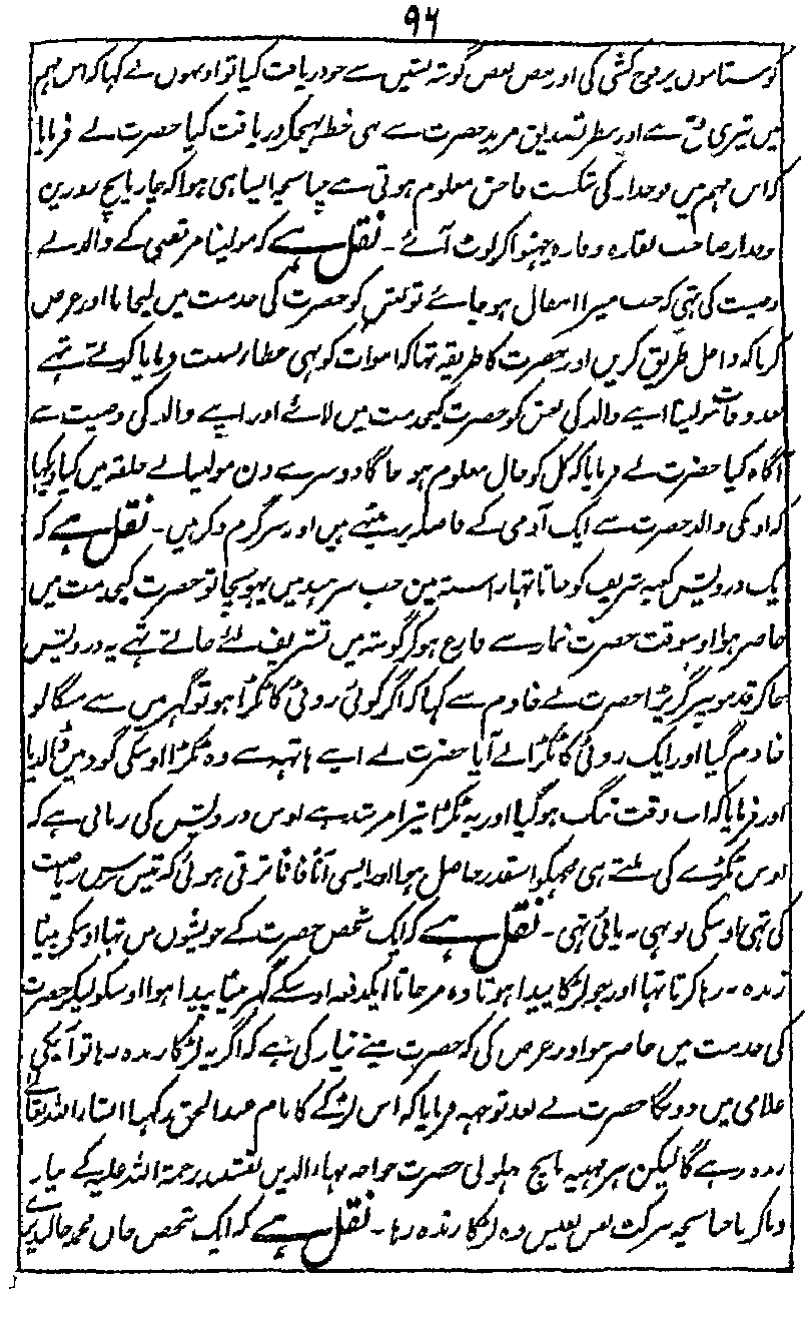 ۹۶
کوستانوں پر فوج کشی کی اور بعض بعض گوشہ نشیں سے جو دریافت کیا تو اونہوں نے کہا کہ اس مہم
میں تیری فتح ہے اور بنظر تصدیق مرید حضرت سے بھی خط بھیجکر دریافت کیا حضرت نے فرمایا
کہ اس مہم میں فوجدار کی شکست فاحش معلوم ہوتی ہے چنانچہ ایسا ہی ہوا کہ چار پانچ روز میں
فوجدار صاحب نقارہ وغارہ چھنوا کر لوٹ آئے ۔ نقل ہے کہ مولینا مرتضی کے والد نے
وصیت کی تہی کہ جب میرا انتقال ہو جائے تو نعش کو حضرت کی خدمت میں لیجانا اور عرض
کرنا کہ داخل طریق کریں اور حضرت کا طریقہ تہا کہ اموات کو بہی عطار نسبت فرمایا کرتے تہے
بعد وفات مولینا اپنے والد کی نعش کو حضرت کیخدمت میں لائے اور اپنے والد کی وصیت سے
آگاہ کیا حضرت نے فرمایا کہ کل کو حال معلوم ہو جائگا دوسرے دن مولینا نے حلقہ میں کیا دیکہا
کہ اونکی والد حضرت سے ایک آدمی کے فاصلہ پر بیٹہے ہیں اور سرگرم ذکر ہیں ۔ نقل ہے کہ
یک درویش کعبہ شریف کو جاتا تہا راستہ مین جب سرہند میں پہونچا تو حضرت کیخدمت میں
حاضر ہوا اوسوقت حضرت نماز سے فارغ ہو کر گوشہ میں تشریف لئے جاتے تہے یہ درویش
جا کر قدمونپر گر پڑا حضرت نے خادم سے کہا کہ اگر کوئی روٹی کا ٹکڑا ہو تو گہر میں سے منگا لو
خادم گیا اور ایک روٹی کا ٹکڑا لے آیا حضرت نے اپنے ہاتہہ سے وہ ٹکڑا اوسکی گود میں ڈالدیا
اور فرمایا کہ اب وقت تنگ ہو گیا اور یہ ٹکڑا تیرا مرشد ہے اوس درویش کی زبانی ہے کہ
اوس ٹکڑے کی ملتے ہی مجہکو اسقدر حاصل ہوا اور ایسی آناً فاناً ترقی ہوئی کہ تیس برس ریاضت
کی تہی اوسکی بو بہی نہ پائی تہی ۔ نقل ہے کہ ایک شخص حضرت کے خویشوں میں تہا اوسکی بیٹا
زندہ نہ رہا کرتا تہا اور جو لڑکا پیدا ہوتا وہ مرجاتا ایکدفعہ اوسکے گہر بیٹا پیدا ہوا اوسکو لیکر حضرت
کی خدمت میں حاضر ہوا اور عرض کی کہ حضرت مینے نیاز کی ہے کہ اگر یہ لڑکا زندہ رہا تو آپکی
غلامی میں دونگا حضرت نے بعد توجہہ فرمایا کہ اس لڑکے کا نام عبدالحق رکہنا انشاء اللہ تعالے
زندہ رہے گا لیکن ہر مہینہ پانچ بہلولی حضرت خواجہ بہاء الدین نقشبند رحمۃ اللہ علیہ کے نیاز
دیا کرنا چنانچہ ببرکت نفس نفیس وہ لڑکا زندہ رہا ۔ نقل ہے کہ ایک شخص جان محمد جالندہری